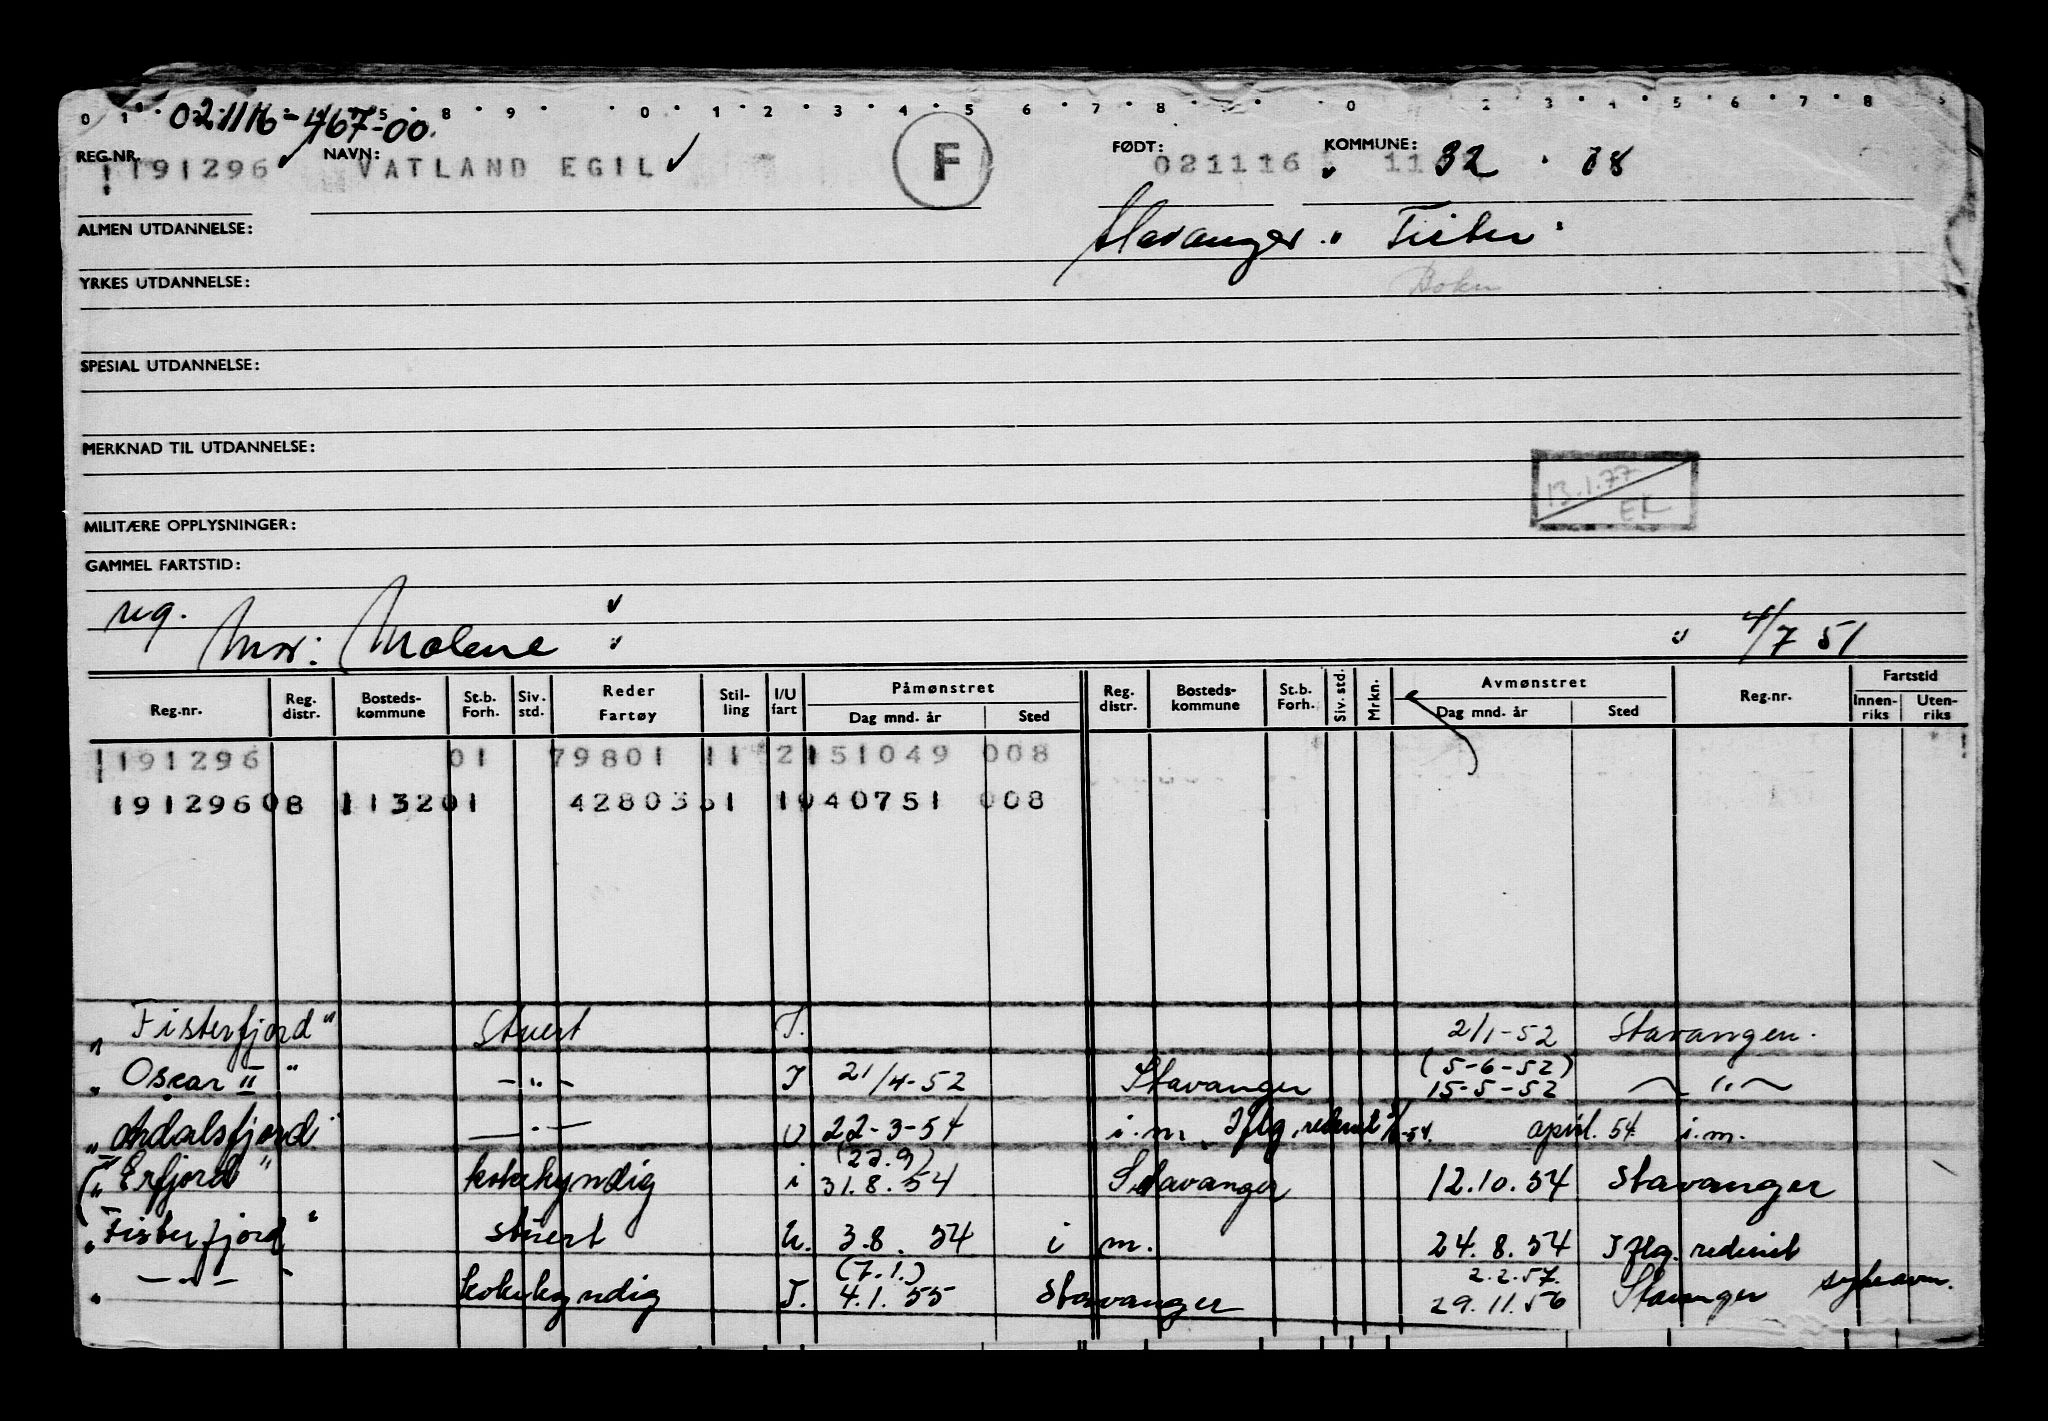 0 1 5 8 9 0 1 2 3 4 5 6 7 8 0 2 3 4 5 6 7 8
021116-467-00.
REG.NR. 191296 NAVN: VATLAND EGIL F FØDT: 021116 KOMMUNE: 11 32
Stavanger Fister
ALMEN UTDANNELSE:
YRKES UTDANNELSE: Bokn
SPESIAL UTDANNELSE:
MERKNAD TIL UTDANNELSE:
13.1.77
EK
MILITÆRE OPPLYSNINGER:
GAMMEL FARTSTID:
reg.
Mor: Malene 4/7 51
Reg.nr. Reg. distr. Bosteds-kommune St.b. Forh. Siv. std. Reder Fartøy Stil-ling I/U fart Påmønstret Dag mnd. år Sted Reg. distr. Bosteds-kommune St.b. Forh. Siv. std. Mrkn. Avmønstret Dag mnd. år Sted Reg.nr. Fartstid Innen-riks Uten-riks
191296 01 79801 11 2 151049 008
19129608 113201 428035 1 1040751 008
"Fisterfjord" Stuert I. 21/1-52 Stavanger.
(5-6-52)
"Oscar II" -"- I 21/4-52 Stavanger 15-5-52 -"-
"Årdalsfjord" -"- U 22-3-54 i.m. Iflg. rederiet april. 54. i.m.
(22.9)
("Erfjord" kokekyndig i 31.8.54 Stavanger 12.10.54 Stavanger
"Fisterfjord" stuert U. 3.8.54 i m. 24.8.54 Iflg. rederiet
(7.1.) 2.2.57.
" -"- " kokekyndig I. 4.1.55 Stavanger 29.11.56 Stavanger